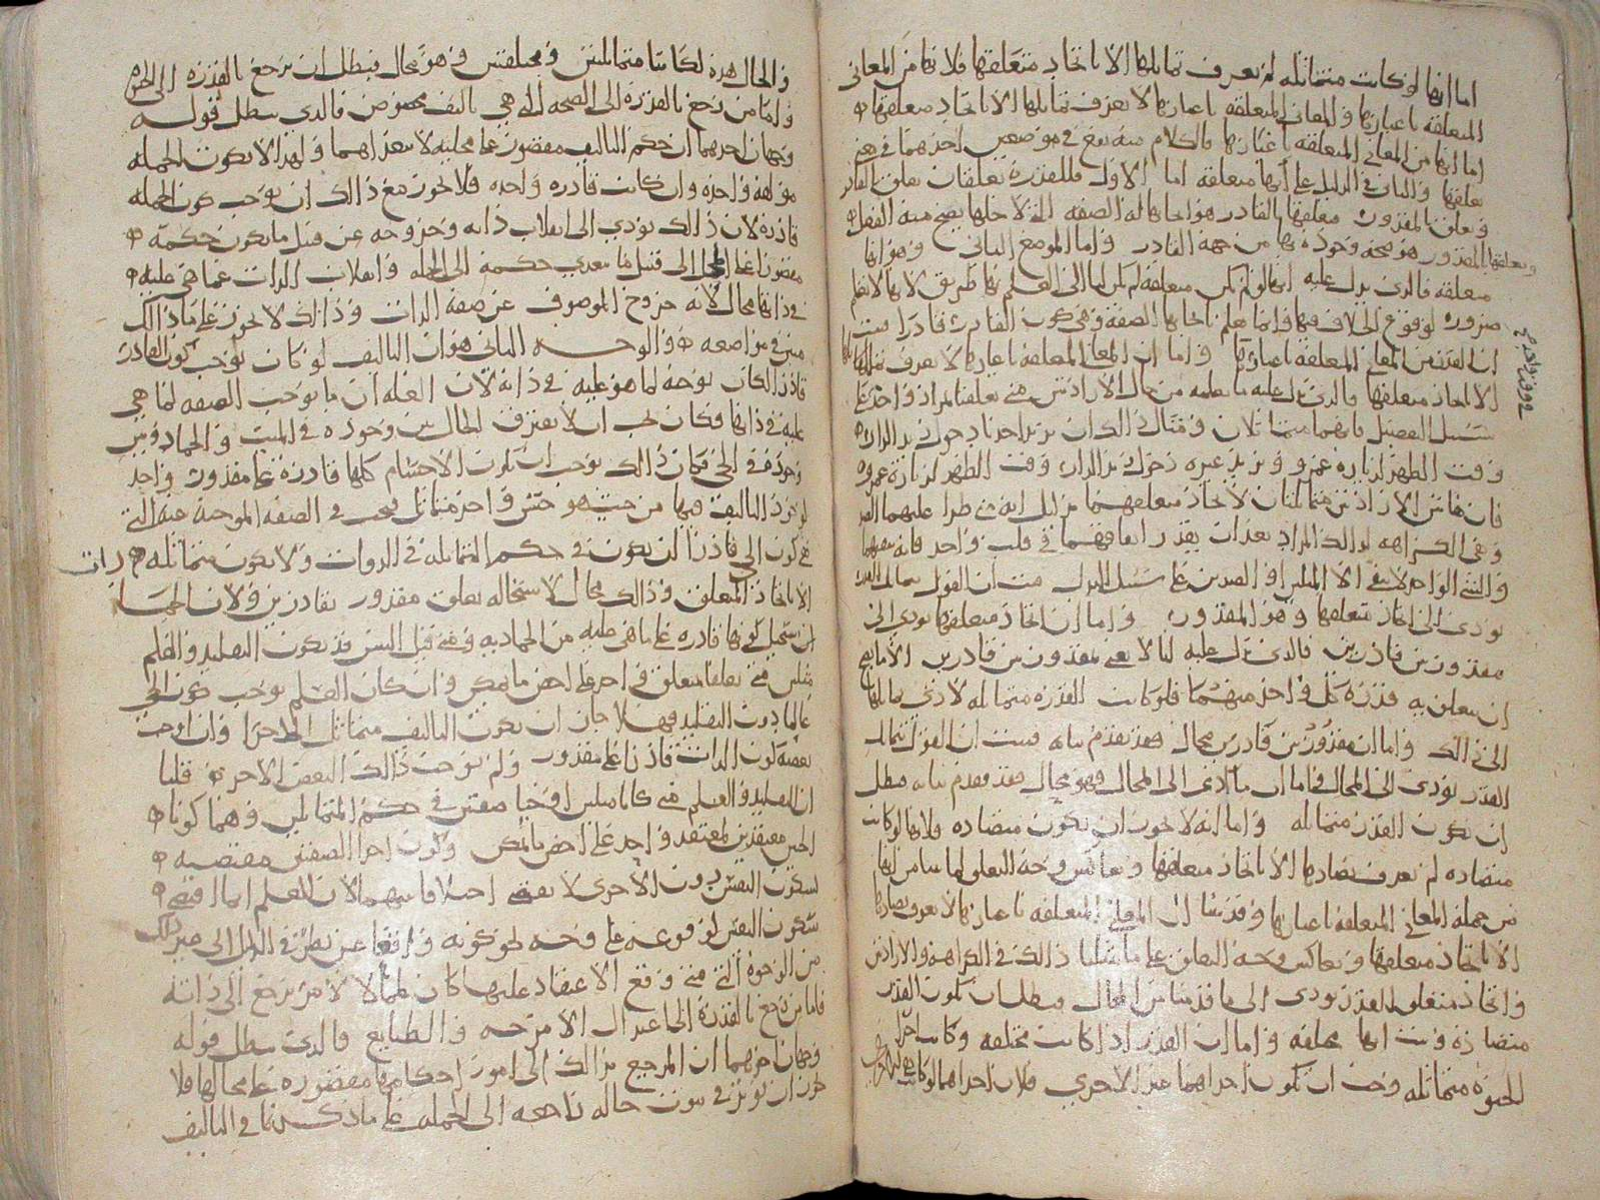 اما انها لو كانت متماثله لم يعرف تماثلها الا باتحاد متعلقها فلانها من المعاني
المتعلقه باعيانها والمعاني المتعلقه باعيانها لا يعرف تماثلها الا باتحاد متعلقها
اما انها من المعاني المتعلقه باعيانها فالكلام منه يقع في موضعين احدهما في
تعلقها والثاني في الدليل على انها متعلقه اما الاول فللقدره تعلقان تعلق بالقادر
وتعلق بالمقدور فتعلقها بالقادر هو ايجابها له الصفه التي لاجلها يصح منه الفعل
وتعلقها بالمقدور هو صحه وجوده بها من جهه القادر واما الموضع الثاني وهو انها
متعلقه فالذي يدل عليه انها لو لم تكن متعلقه لم يكن لنا الى العلم بها طريق لانها لا تعلم
ضروره لوقوع الخلاف فيها وانما تعلم بايجابها الصفه وهي كون القادر قادرا فثبت
ان القدر من المعاني المتعلقه باعيانها واما ان المعاني المتعلقه باعيانها لا يعرف تماثلها
الا باتحاد متعلقها فالذي يدل عليه ما نعلمه من حال الارادتين متى تعلقتا بمراد واحد على
سبيل التفصيل فانهما متماثلان ومثال ذلك ان يريد احدنا دخول زيد الدار
وقت الظهر لزياره عمرو ويريد غيره دخول زيد الدار وقت الظهر لزياره عمرو
فان هاتين الارادتين متماثلتان لاتحاد متعلقهما بدليل انه متى طرا عليهما الضد
وهي الكراهه لذلك المراد بعد ان يقدر اتفاقهما في قلب واحد فانه ينفيهما
والشي الواحد لا ينفي الا المثلين او الضدين على سبيل البدل فثبت ان القول بتماثل القدر
يؤدي الى اتحاد متعلقها وهو المقدور واما ان اتحاد متعلقها يؤدي الى
مقدور بين قادرين فالذي يدل عليه انا لا نعني بمقدور بين قادرين الا ما يصح
ان يتعلق به قدره كل واحد منهما فلو كانت القدره متماثله لادى تماثلها
الى ذلك واما ان مقدور بين قادرين محال فقد تقدم بيانه فثبت ان القول بتماثل
القدر يؤدي الى المحال واما ان ما ادى الى المحال فهو محال فقد تقدم بيانه فبطل
ان تكون القدر متماثله واما انه لا يجوز ان تكون متضاده فلانها لو كانت
متضاده لم يعرف تضادها الا باتحاد متعلقها وتعاكس وجه التعلق لما بينا من انها
من جمله المعاني المتعلقه باعيانها وقد بينا ان المعاني المتعلقه باعيانها لا يعرف تضادها
الا باتحاد متعلقها وتعاكس وجه التعلق على ما مثلنا ذلك في الكراهه والاراده
واتحاد متعلق القدر يؤدي الى ما قدمنا من المحال فبطل ان تكون القدر
متضاده فثبت انها مختلفه واما ان القدر اذا كانت مختلفه وكانت
الحيوه متماثله وجب ان تكون احداهما غير الاخرى فلان احداهما لو كانت
والحال هذه لكانتا متماثلتين ومختلفتين وهو محال فبطل ان يرجع بالقدره الى الحيوه
واما من رجع بالقدره الى الصحه التي هي تاليف مخصوص فالذي يبطل قوله
وجهان احدهما ان حكم التاليف مقصور على محله لا يتعداهما ولهذا لا تكون الجمله
مؤلفه واحده وان كانت قادره واحده فلا يجوز مع ذلك ان يوجب كون الجمله
قادره لان ذلك يؤدي الى انقلاب ذاته وخروجه عن قبيل ما يكون حكمه
مقصورا على المحل الى قبيل ما يتعدى حكمه الى الجمله وانقلاب الذات عما هي عليه
في ذاتها محال لانه خروج الموصوف عن صفه الذات وذلك لا يجوز على ما ذلك
مبين في مواضعه والوجه الثاني هو ان التاليف لو كان يوجب كون القادر
قادرا لكان يوجبه لما هو عليه في ذاته لان العله ان ما يوجب الصفه لما هي
عليه في ذاتها فكان يجب ان لا يفترق الحال بين وجوده في الميت والجماد وبين
وجوده في الحي فكان ذلك يوجب ان تكون الاجسام كلها قادره على مقدور واحد
لوجود التاليف فيها من حيث هو جنس واحد متماثل فيجب في الصفه الموجبه عنه التي
هي كون الحي قادرا ان تكون في حكم المتماثله في الذوات ولا تكون متماثله
الا باتحاد المتعلق وذلك محال لاستحاله تعلق مقدور بقادرين ولان الجمادات
يستحيل كونها قادره على ما هي عليه من الجماديه فان قيل اليس قد يكون التقليد والعلم
مثلين متى تعلقا بمتعلق واحد على اخص ما يمكن وان كان العلم يوجب كون الحي
عالما دون التقليد فهلا جاز ان يكون التاليف متماثل الاجزا وان اوجب
بعضه كون الذات قادرا على مقدور ولم يوجب ذلك البعض الاخر قلنا
ان التقليد والعلم متى كانا مثلين اوجبا صفتين في حكم المتماثلين وهما كونا
الحي معتقدين لمعتقد واحد على اخص ما يمكن وكون احدى الصفتين مقتضيه
لسكون النفس دون الاخرى لا يقتضي اختلافا بينهما لان العلم انما اقتضى
سكون النفس لوقوعه على وجه نحو كونه واقعا عن نظر في الدليل الى غير ذلك
من الوجوه التي متى وقع الاعتقاد عليها كان علما لا لامر يرجع الى ذاته
فاما من رجع بالقدره الى اعتدال الامزجه والطبايع فالذي يبطل قوله
وجهان احدهما ان المرجع بذلك الى امور احكامها مقصوره على محالها فلا
يجوز ان تؤثر في ثبوت حاله راجعه الى الجمله على ما ذكرنا في التاليف